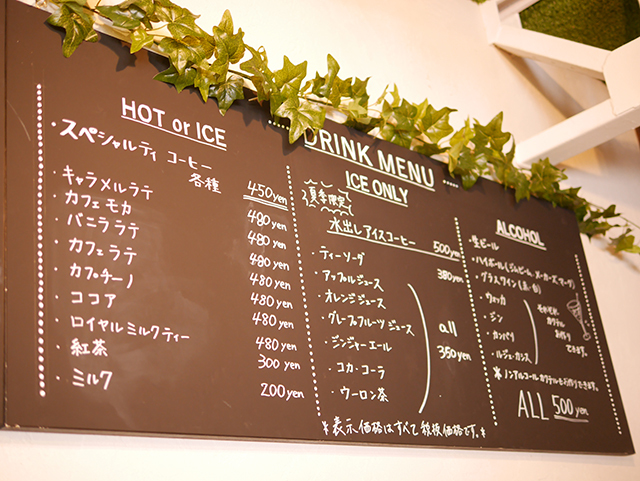 DRINK MENU
HOT or ICE
・スペシャルティ コーヒー
各種 450yen
・キャラメルラテ 480yen
・カフェモカ 480yen
・バニララテ 480yen
・カフェラテ 480yen
・カプチーノ 480yen
・ココア 480yen
・ロイヤルミルクティー 480yen
・紅茶 300yen
・ミルク 200yen
ICE ONLY
夏季限定
水出しアイスコーヒー 500yen
・ティーソーダ 380yen
・アップルジュース
・オレンジジュース
・グレープフルーツジュース
・ジンジャーエール
・コカ・コーラ
・ウーロン茶
all
350yen
ALCOHOL
・生ビール
・ハイボール(ジムビーム・メーカーズマーク)
・グラスワイン(赤・白)
・ウォッカ
・ジン
・カンパリ
・ルジェ・カシス
それぞれ
カクテル
お作り
できます。
※ノンアルコールカクテルもお作りできます。
ALL 500yen
※表示価格はすべて税抜価格です。※